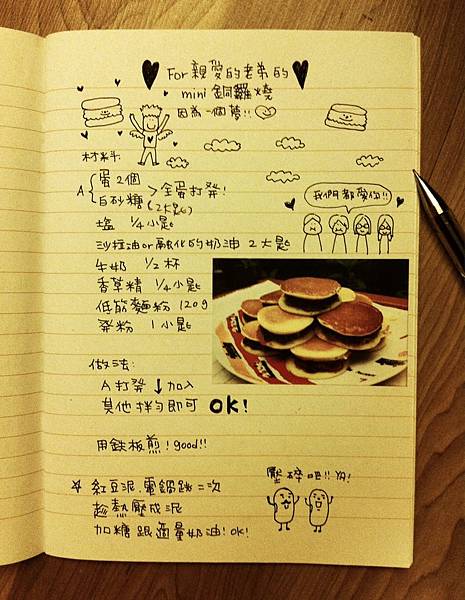 For 親愛的老弟的
mini 銅鑼燒
因為一個夢!!
材料
A 蛋 2個
白砂糖 (2大匙)
>全蛋打發!
鹽 1/4 小匙
沙拉油 or 融化的奶油 2 大匙
牛奶 1/2 杯
香草精 1/4 小匙
低筋麵粉 120g
發粉 1 小匙
我們都愛你!!
做法:
A 打發 ↓ 加入
其他拌勻即可 OK!
用鉄板煎! good!!
☆ 紅豆泥,電鍋跳二次
趁熱壓成泥
加糖跟適量奶油! OK!
壓碎吧!!